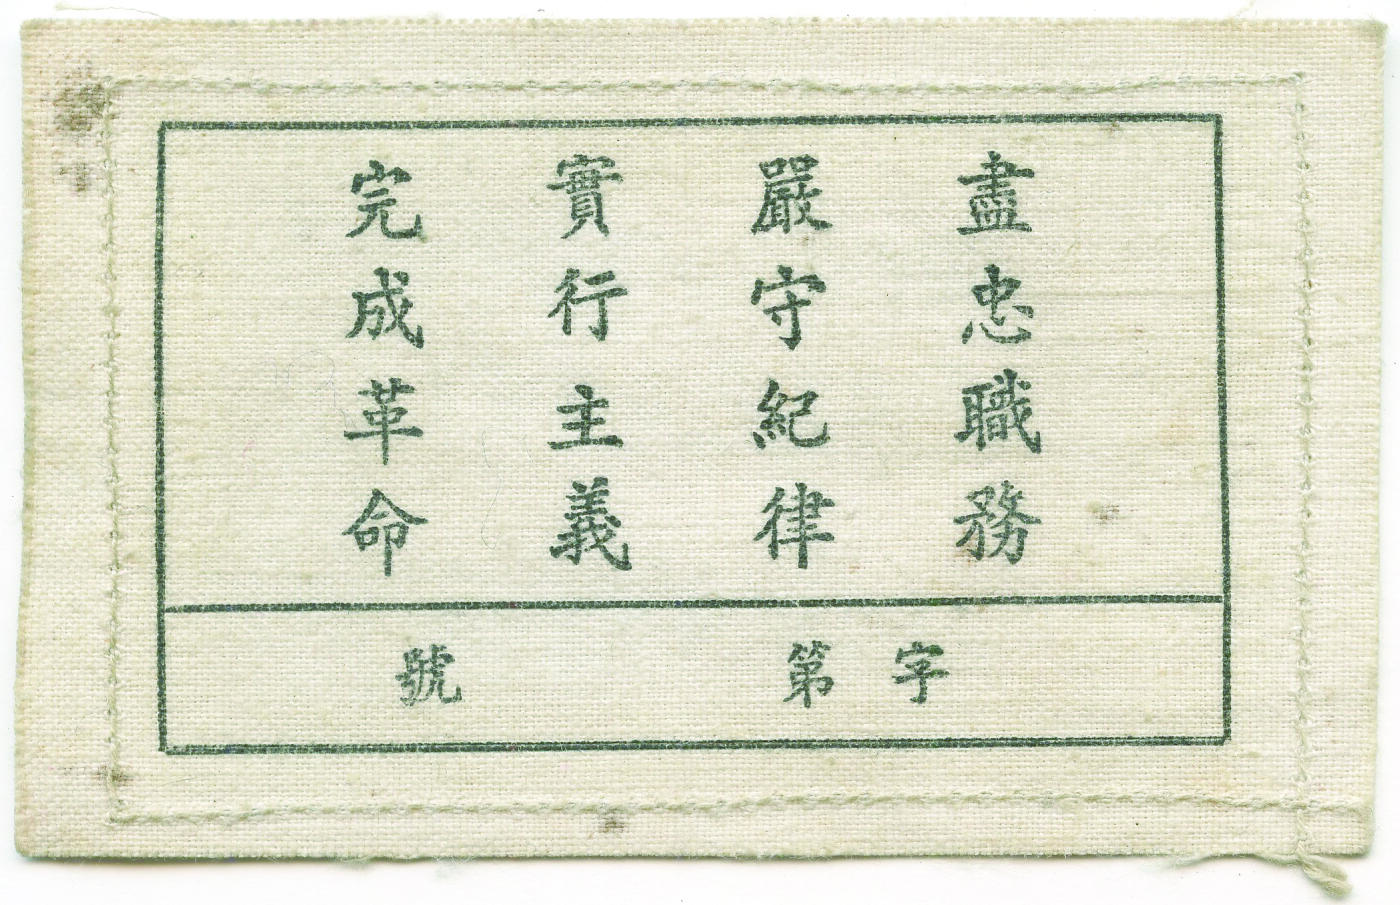 盡忠職務
嚴守紀律
實行主義
完成革命
字第 號